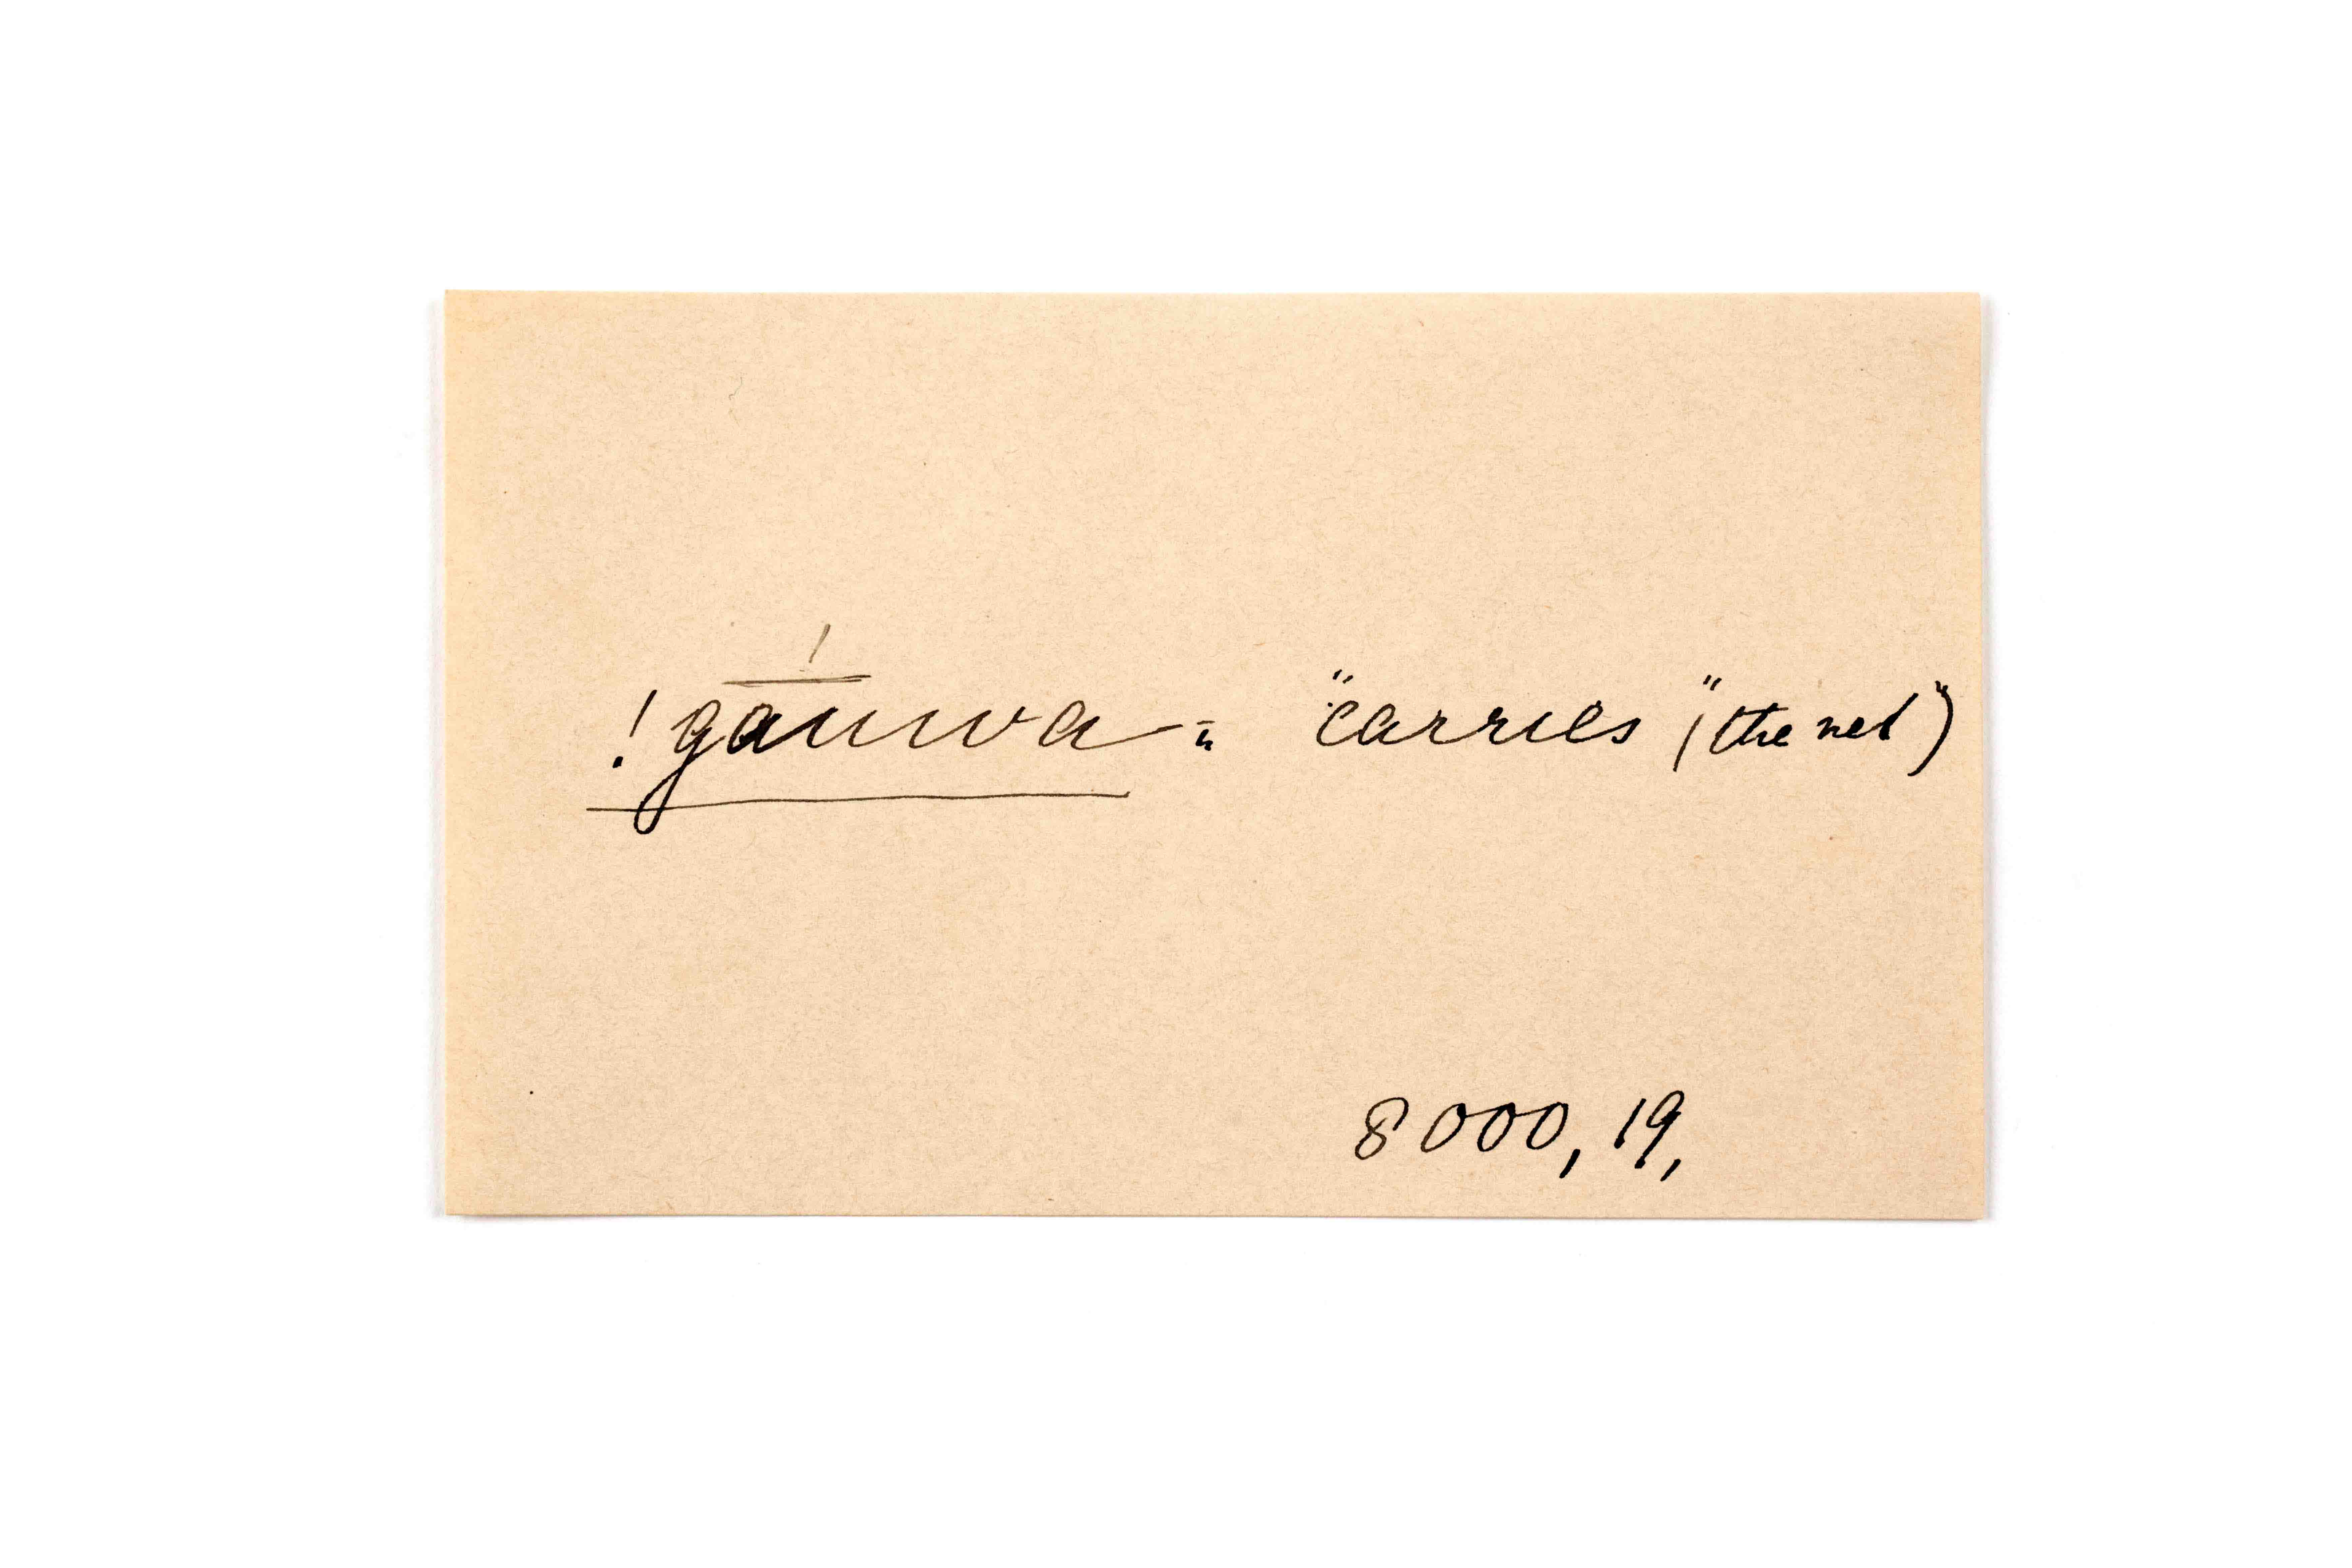 !gā́uwa = "carries" (the net")
8000, 19,